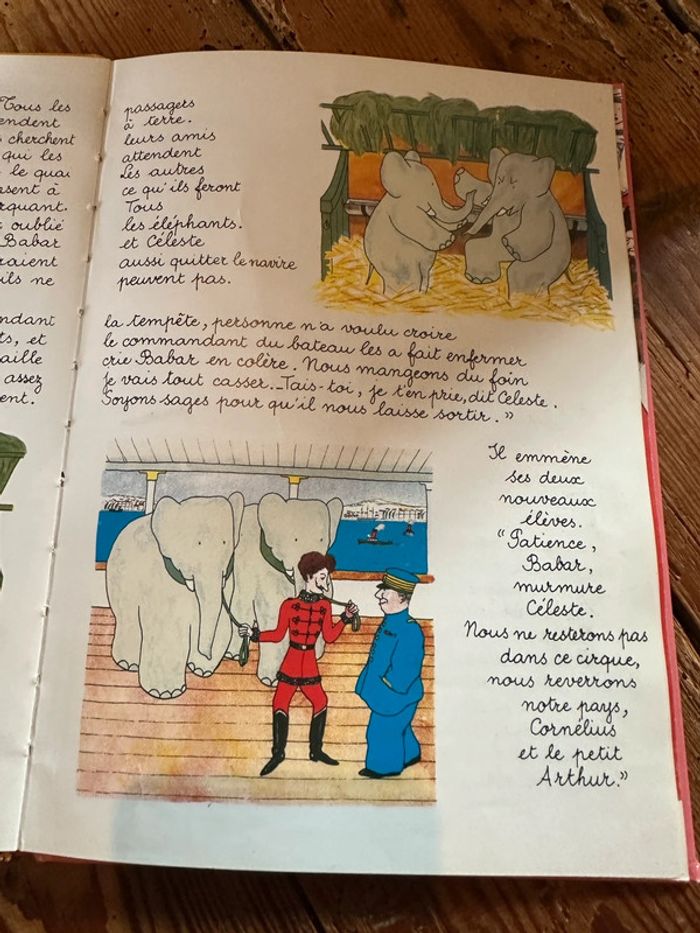 Tous les
endent
cherchent
qui les
le quai
sent à
rquant.
oublié
Babar
raient
ils ne
ndant
ts, et
aille
assez
ent.
passagers
à terre.
leurs amis
attendent
Les autres
ce qu'ils feront
Tous
les éléphants.
et Céleste
aussi quitter le navire
peuvent pas.
la tempête, personne n'a voulu croire
le commandant du bateau les a fait enfermer
crie Babar en colère. Nous mangeons du foin
je vais tout casser. _Tais-toi, je t'en prie, dit Céleste.
Soyons sages pour qu'il nous laisse sortir."
Il emmène
ses deux
nouveaux
élèves.
"Patience,
Babar,
murmure
Céleste.
Nous ne resterons pas
dans ce cirque,
nous reverrons
notre pays,
Cornélius
et le petit
Arthur."